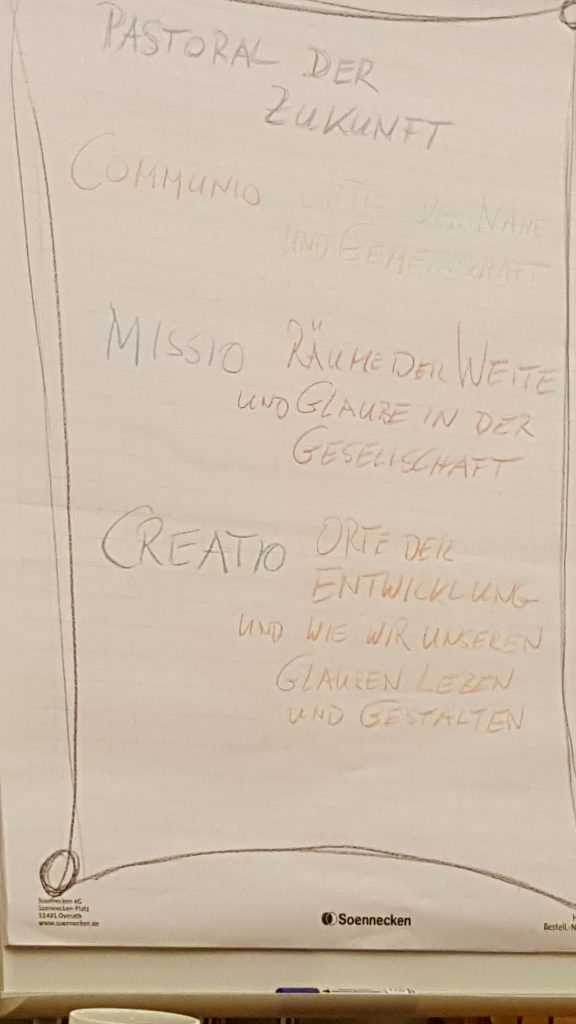 PASTORAL DER
ZUKUNFT
COMMUNIO ORTE DER NÄHE
UND GEMEINSCHAFT
MISSIO RÄUME DER WEITE
UND GLAUBE IN DER
GESELLSCHAFT
CREATIO ORTE DER
ENTWICKLUNG
UND WIE WIR UNSEREN
GLAUBEN LEBEN
UND GESTALTEN
Soennecken eG
Soennecken-Platz
51491 Overath
www.soennecken.de
Soennecken
Bestell.-N